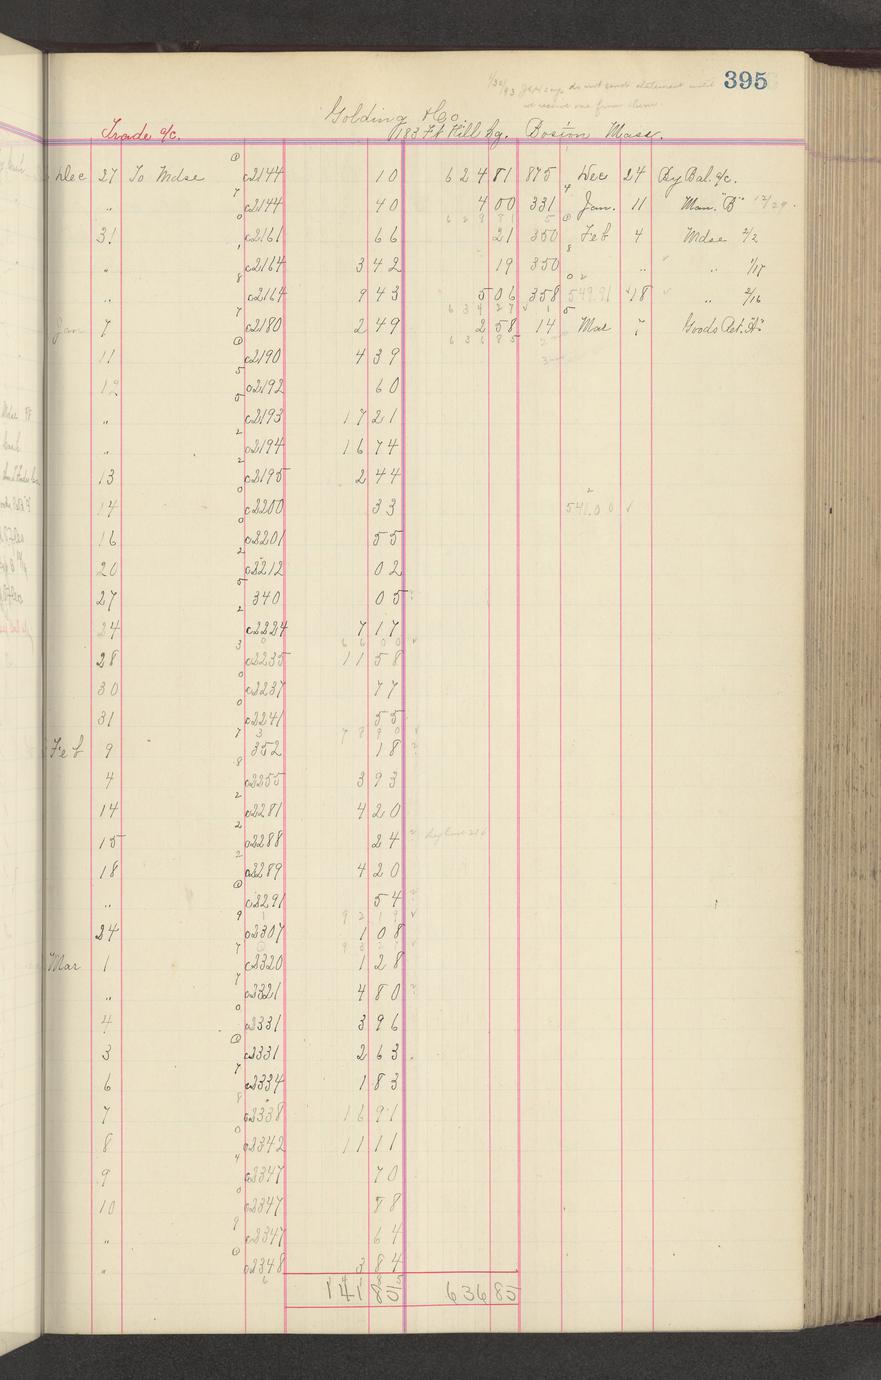 395
1/30/93 do not send statement until
we receive one from them.
Golding & Co.
Trade a/c. 183 Ft Hill Sq. Boston Mass.
Dec 27 To Mdse c2144 10 624 81 875 Dec 24 By Bal. a/c.
" c2144 40 4 00 331 Jan. 11 Man. "B" 12/29.
628 81
31 c2161 66 21 350 Feb 4 Mdse 2/2
" c2164 3 42 19 350 " " 1/17
" c2164 9 43 5 06 358 549.91 18 " 2/16
634 27
Jan 7 c2180 2 49 2 58 14 Mar 7 Goods Ret. "A"
636 85
11 c2190 4 39
12 c2192 60
" c2193 17 21
" c2194 16 74
13 c2195 2 44
14 c2200 33 541.00
16 c2201 55
20 c2212 02
27 340 05
24 c2224 7 17
66 00
28 c2235 11 58
30 c2237 77
31 c2241 55
78 90
Feb 9 352 18
4 c2255 3 93
14 c2281 4 20
15 c2288 24
18 c2289 4 20
" c2291 54
92 19
24 c2307 1 08
93 27
Mar 1 c2320 1 28
" c2321 4 80
4 c2331 3 96
3 c2331 2 63
6 c2334 1 83
7 c2338 16 91
8 c2342 11 11
9 c2347 70
10 c2347 88
" c2347 64
" c2348 3 84
141 85 636 85